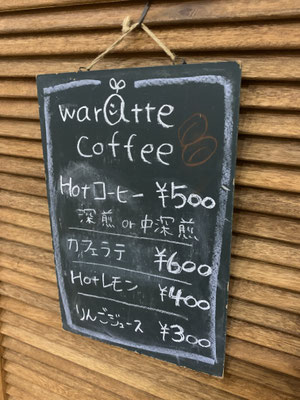 waratte
coffee
Hotコーヒー ¥500
深煎 or 中深煎
カフェラテ ¥600
Hotレモン ¥400
りんごジュース ¥300